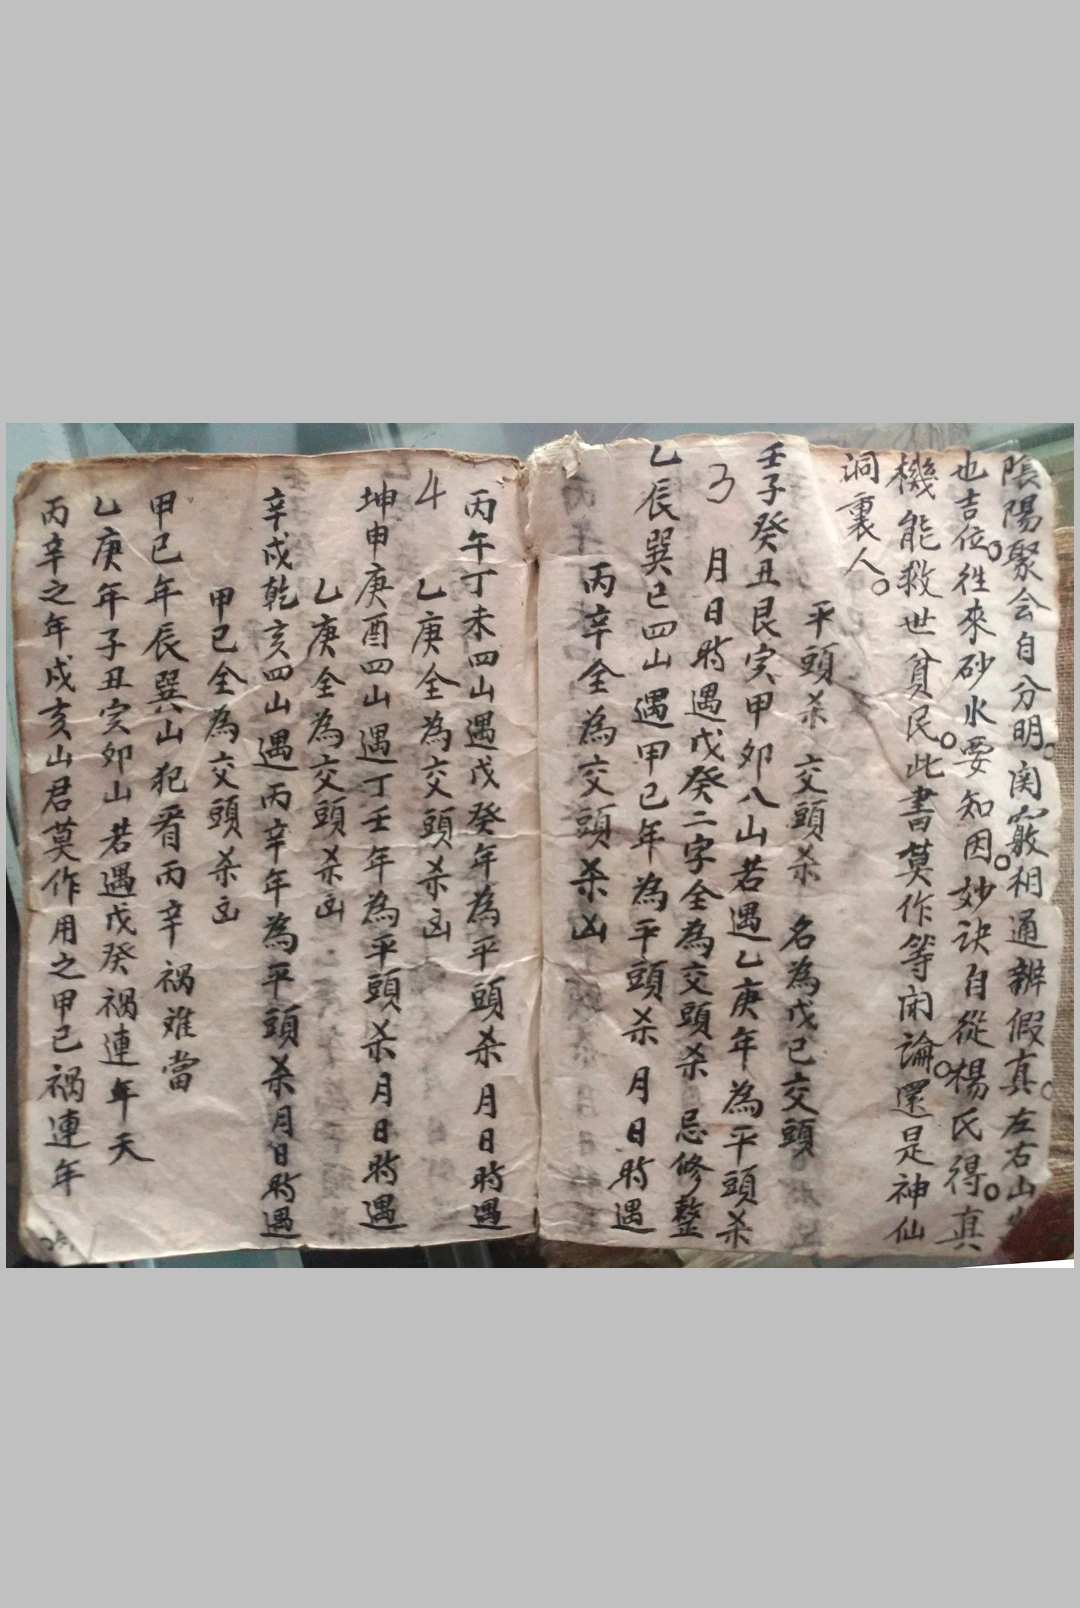 陰陽聚会自分明。関竅相通辨假真。左右山
也吉位。徃來砂水要知因。妙诀自從楊氏得。真
機能救世貧民。此書莫作等闲論。還是神仙
洞裏人。
平頭杀 交頭杀 名為戊己交頭
壬子癸丑艮寅甲卯八山若遇乙庚年為平頭杀
3 月日时遇戊癸二字全為交頭杀 忌修整
乙辰巽巳四山遇甲己年為平頭杀 月日时遇
丙辛全為交頭杀凶
丙午丁未四山遇戊癸年為平頭杀月日时遇
4 乙庚全為交頭杀凶
坤申庚酉四山遇丁壬年為平頭杀月日时遇
乙庚全為交頭杀凶
辛戌乾亥四山遇丙辛年為平頭杀月日时遇
甲己全為交頭杀凶
甲己年辰巽山犯着丙辛祸难當
乙庚年子丑寅卯山若遇戊癸祸連年天
丙辛之年戌亥山君莫作用之甲己祸連年